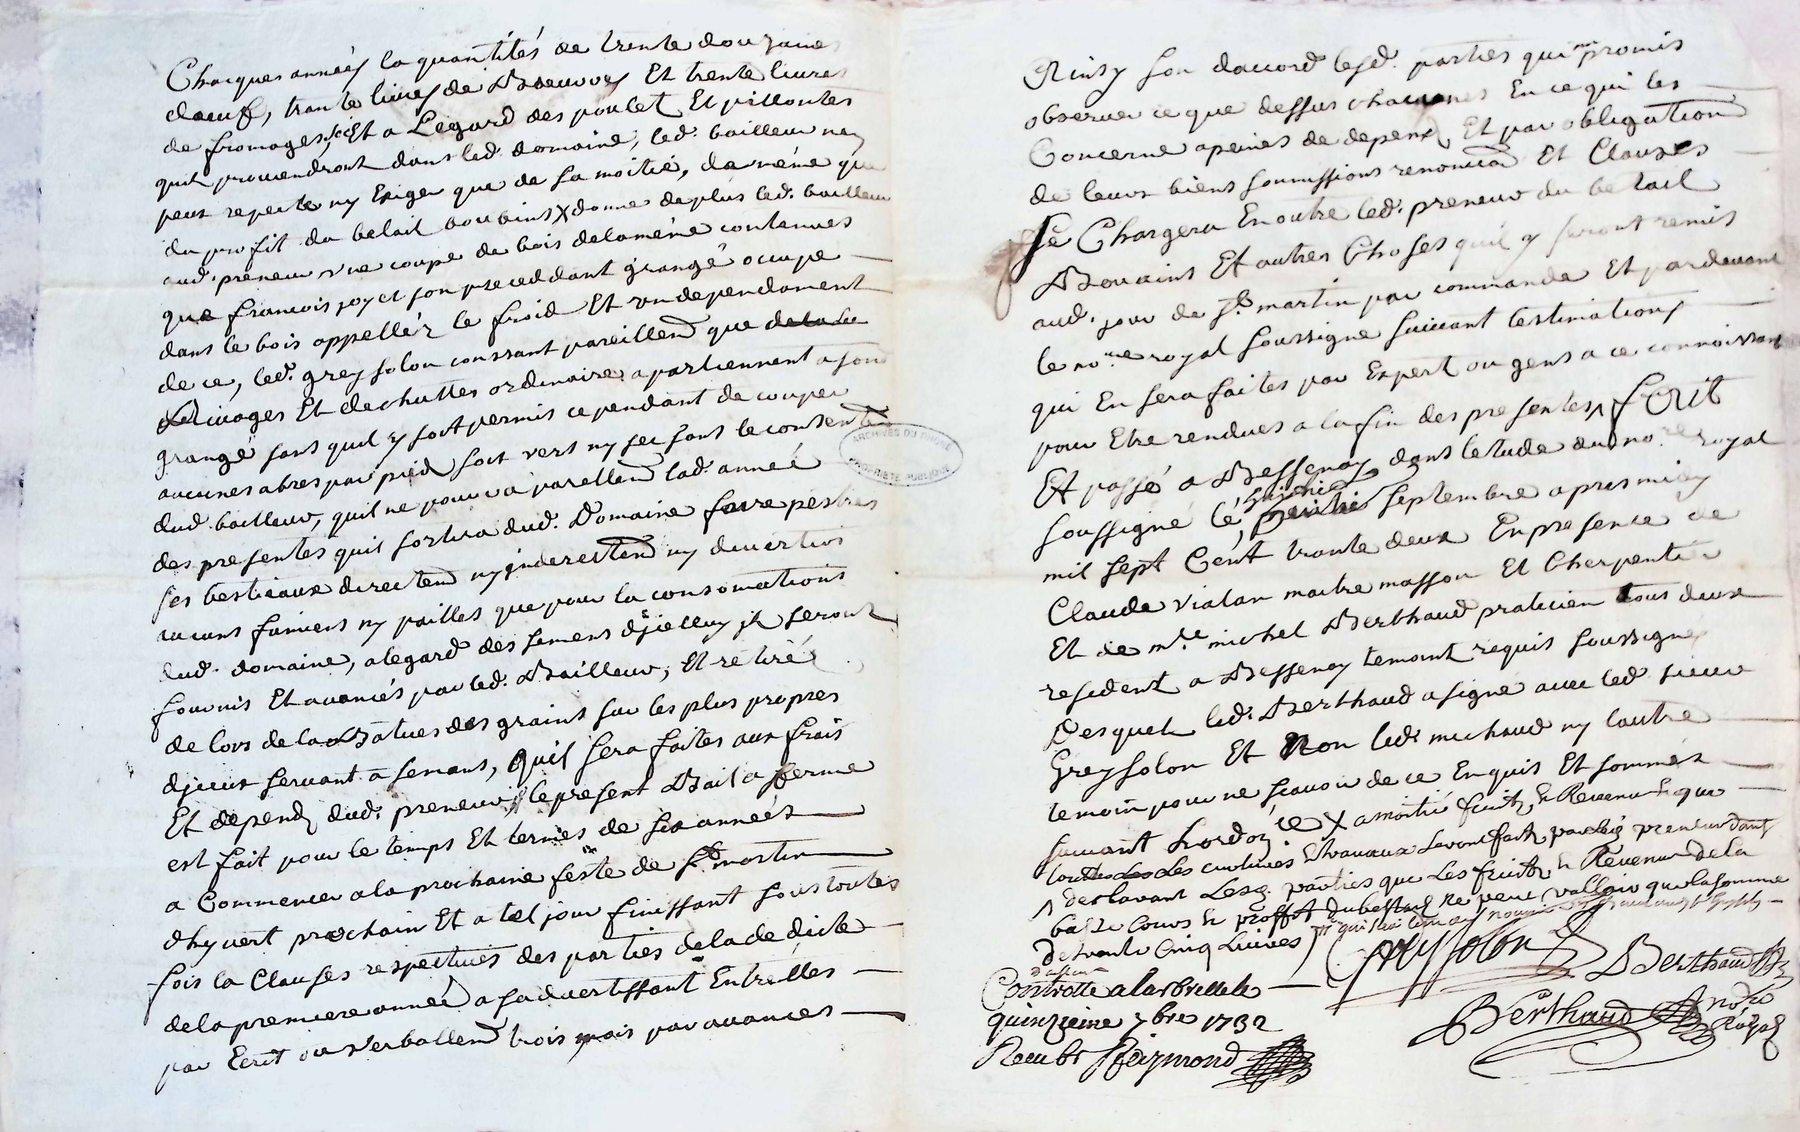 Chacques année la quantités de trente douzaines
doeufs, trante livres de Beurres Et trente livres
de fromages, Et a Légard des poulet Et
quil proviendront dans led. domaine, led. bailleur ny
peut repeter ny Exiger que de la moitié, de méme que
du profit du betail bouvins X donne deplus led. bailleur
aud. preneur une coupe de bois delaméme contenues
que francois joyet son preceddant grangé occupe
dans le bois appellér le froid Et undependament
de ce, led. greysolon conssant pareillemt que
Et dechuttes ordinaire apartiennent a son
grangé sans quil y soit permis cependant de couper
aucunes abres par pied soit vert ny sec sans le consentemt
dud. bailleur, quil ne pourra parellemt lad. année
des presentes quil sortira dud. Domaine faire
ses bestieaux directemt ny jnderectemt ny divertir
aucuns fumiers ny pailles que pour la consomations
dud. domaine, alegard des semens djcelluy jls seront
fournis Et avancés par led. Bailleur, Et retiré
de lors de la Batues des grains sur les plus propres
djceux servant a semans, quil sera faites aux frais
Et depend dud. preneur, le present Bail a fferme
est fait pour le temps Et termes de six années
a Commencer a la prochaine feste de St. martin
dhyvert prochain Et a tel jour finissant sous toutes
fois la Clauses respectives des parties delade dicte
dela premiere année a sadvertissant Entrélles
par Ecrit ou Verballemt trois mois par avances
Ainsy son daccord lesd. parties qui ont promis
observer ce que dessus chacunes En ce qui les
Concerne apeines de depens, Et par obligation
de leurs biens soumissions renonciaon Et Clauses
Se Chargera Enoutre led. preneur du betail
Bovains Et autres Choses quil y seront remis
aud. jour de St. martin par commande Et pardevant
le nore. royal soussigne suivant lestimations
qui En sera faites par Expert ou gens a ce connoissant
pour Etre rendues a la fin des presentes, fait
Et passé a Bessenay dans letude dud. nore. royal
soussigné le septembre apres midy
mil sept Cent trante deux En presence de
Claude vialan maitre masson Et Cherpentier
Et de me. michel Berthaud praticien tous deux
resident a Bessenay temoint requis soussignés
Desquels led. Berthaud a signé avec led. sieur
Greysolon Et Non led. michaud ny lautre
temoin pour ne scavoir de ce Enquis Et sommés
suivant Lordoce X a moitié fruits, & Revenus que
toutes les cultures & travaux seront faits par led. preneur
declarant Lesd. parties que Les fruits & Revenus de la
& proffit du bestail ne peut valloir que la somme
de trante Cinq Livres
Greysolon Berthaud
Controllé a larbrelle le
quinzieme 7bre 1732
Recu Raymond
Berthaud nore Royal
ARCHIVES DU RHONE
PROPRIETE PUBLIQUE